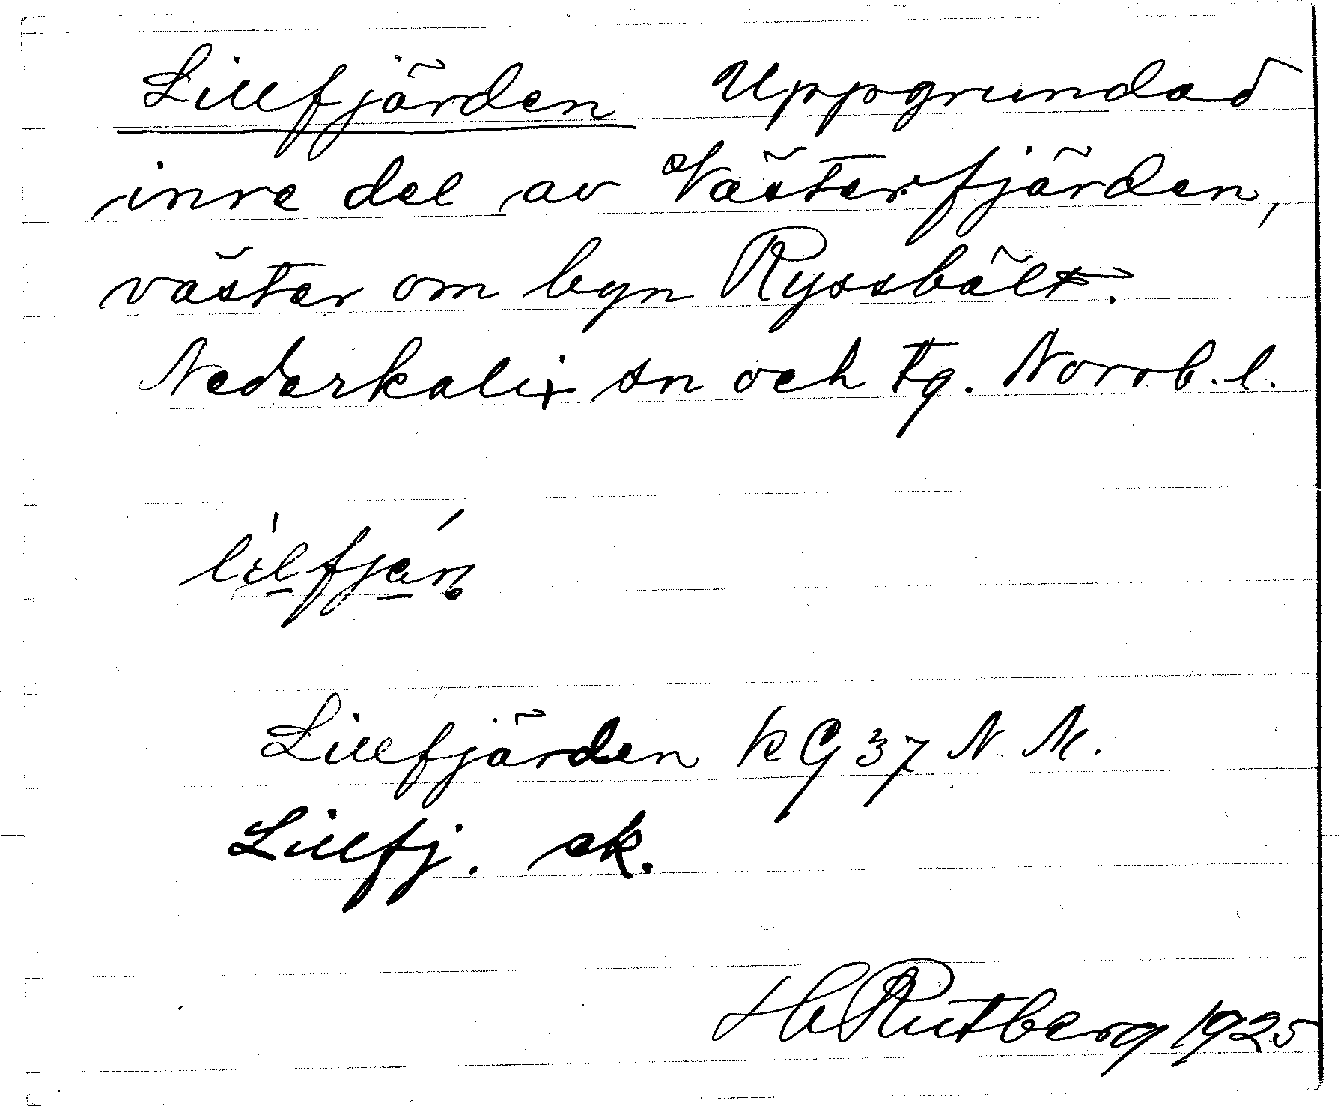 Lillfjärden Uppgrundad
inre del av Västerfjärden,
väster om byn Ryssbält.
Nederkalix sn och tg. Norrb. l.
Lillfjärden k G 37 N M.
Lillfj. ek.
H Rutberg 1925